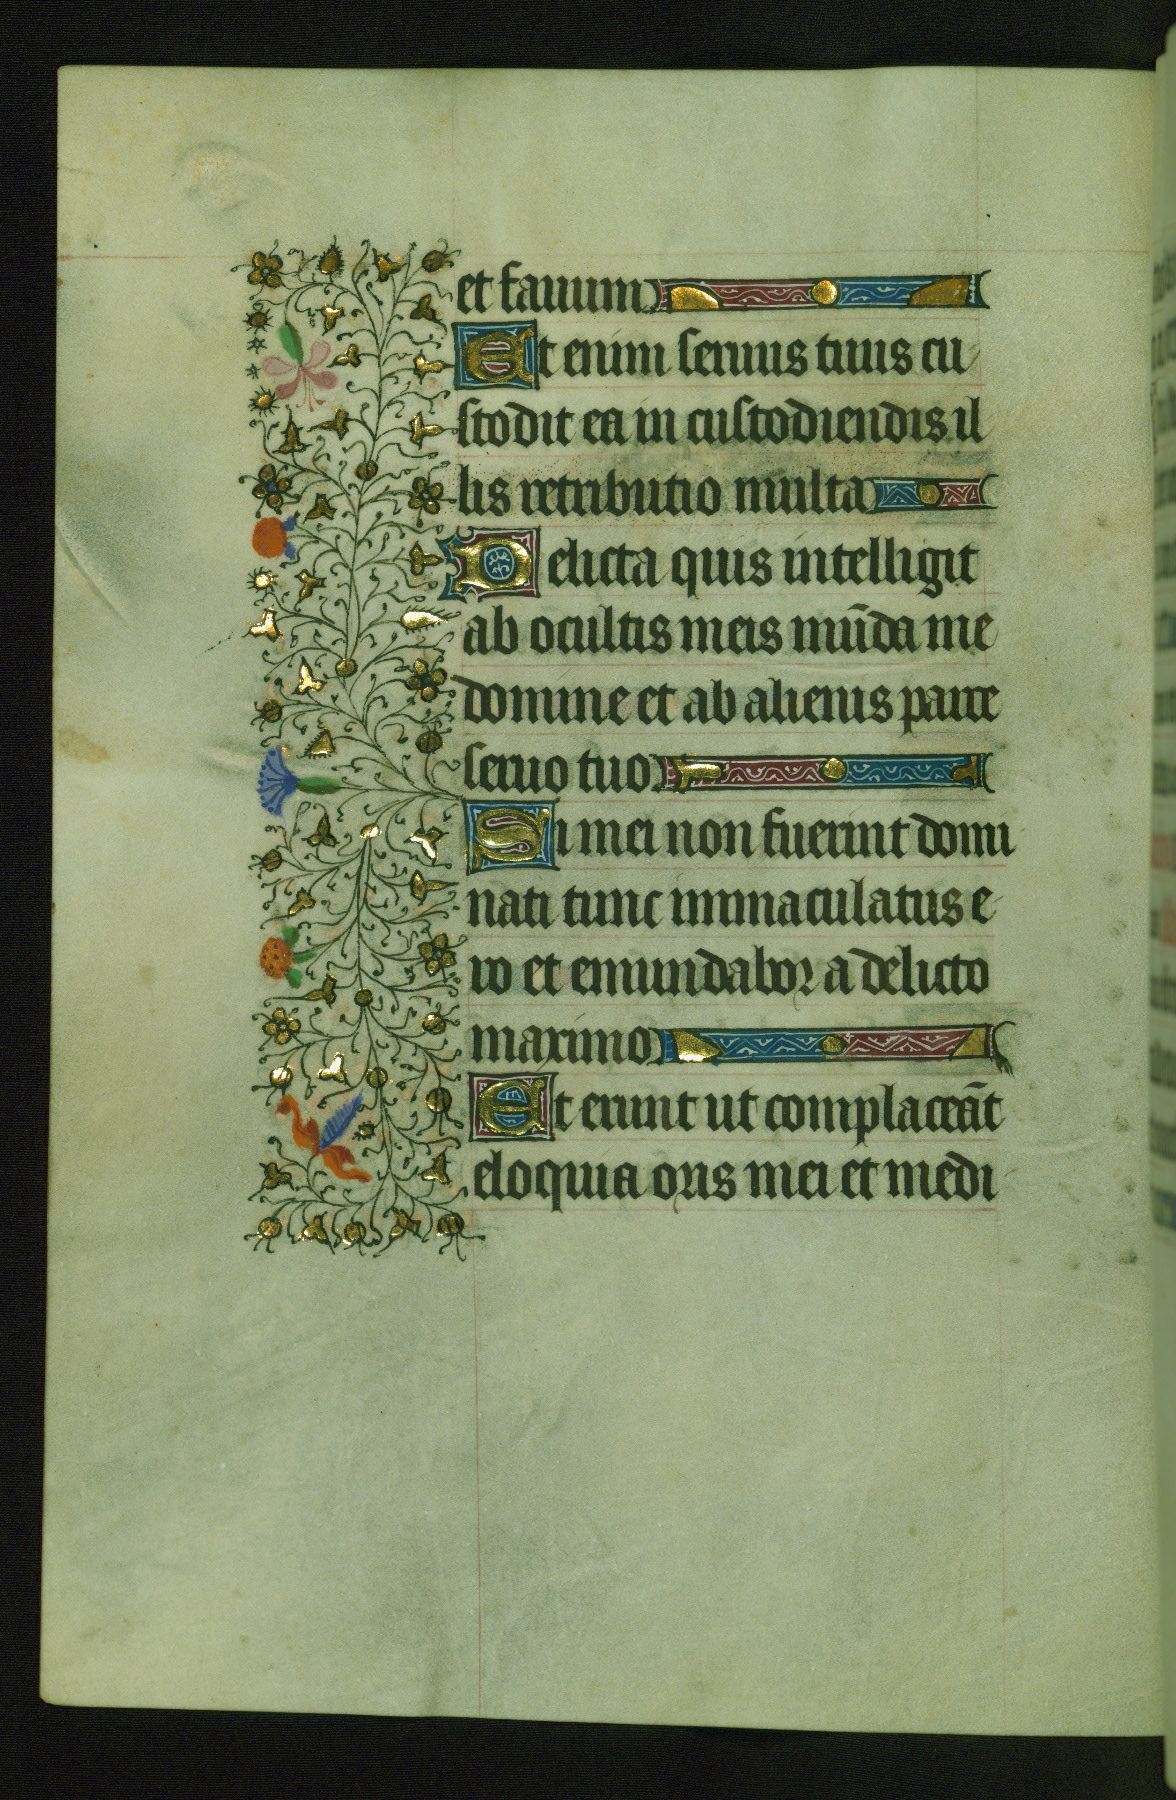 et fauum
Et enim seruus tuus cu
stodit ea in custodiendis il
lis retributio multa
Delicta quis intelligit
ab ocultis meis mūda me
domine et ab alienis parce
seruo tuo
Si mei non fuerint domi
nati tunc immaculatus e
ro et emundabor a delicto
maximo
Et erunt ut complaceāt
eloquia oris mei et medi